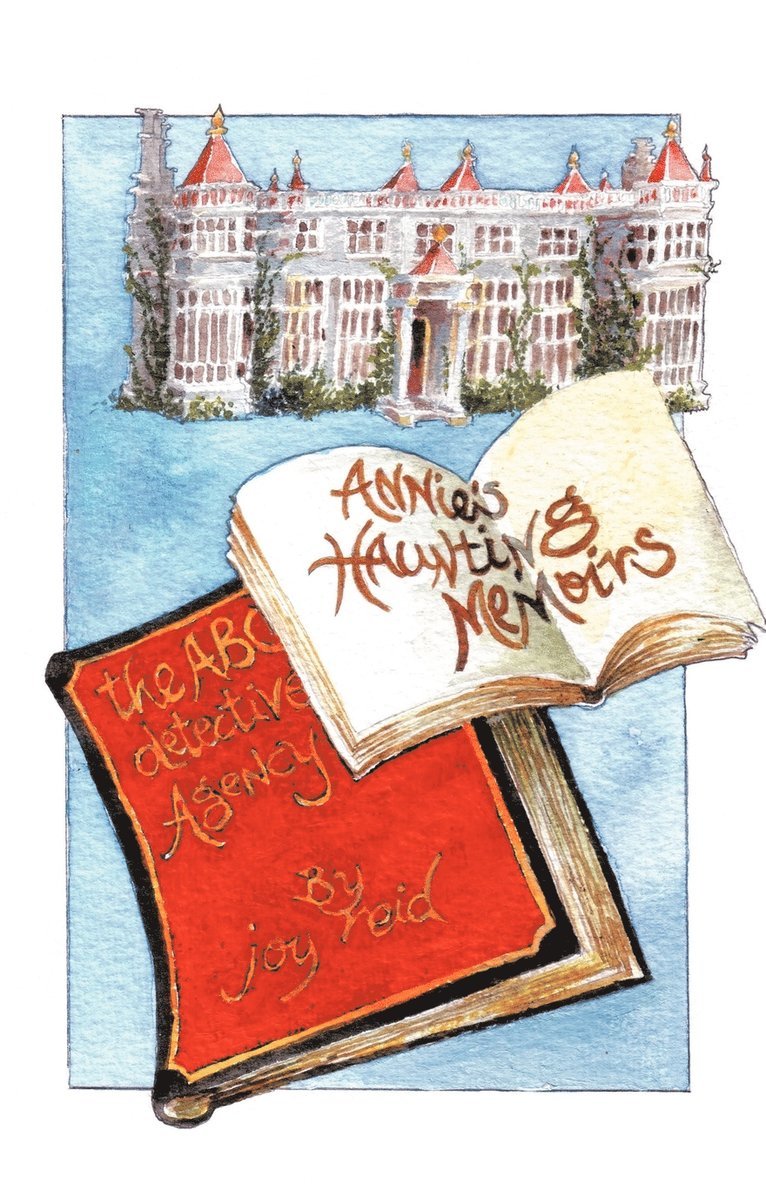 ANNie's
HAUNTiNg
MeMoirs
the ABC
detective
Agency
By
joy reid